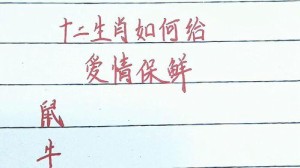 十二生肖如何给
爱情保鲜
鼠
牛